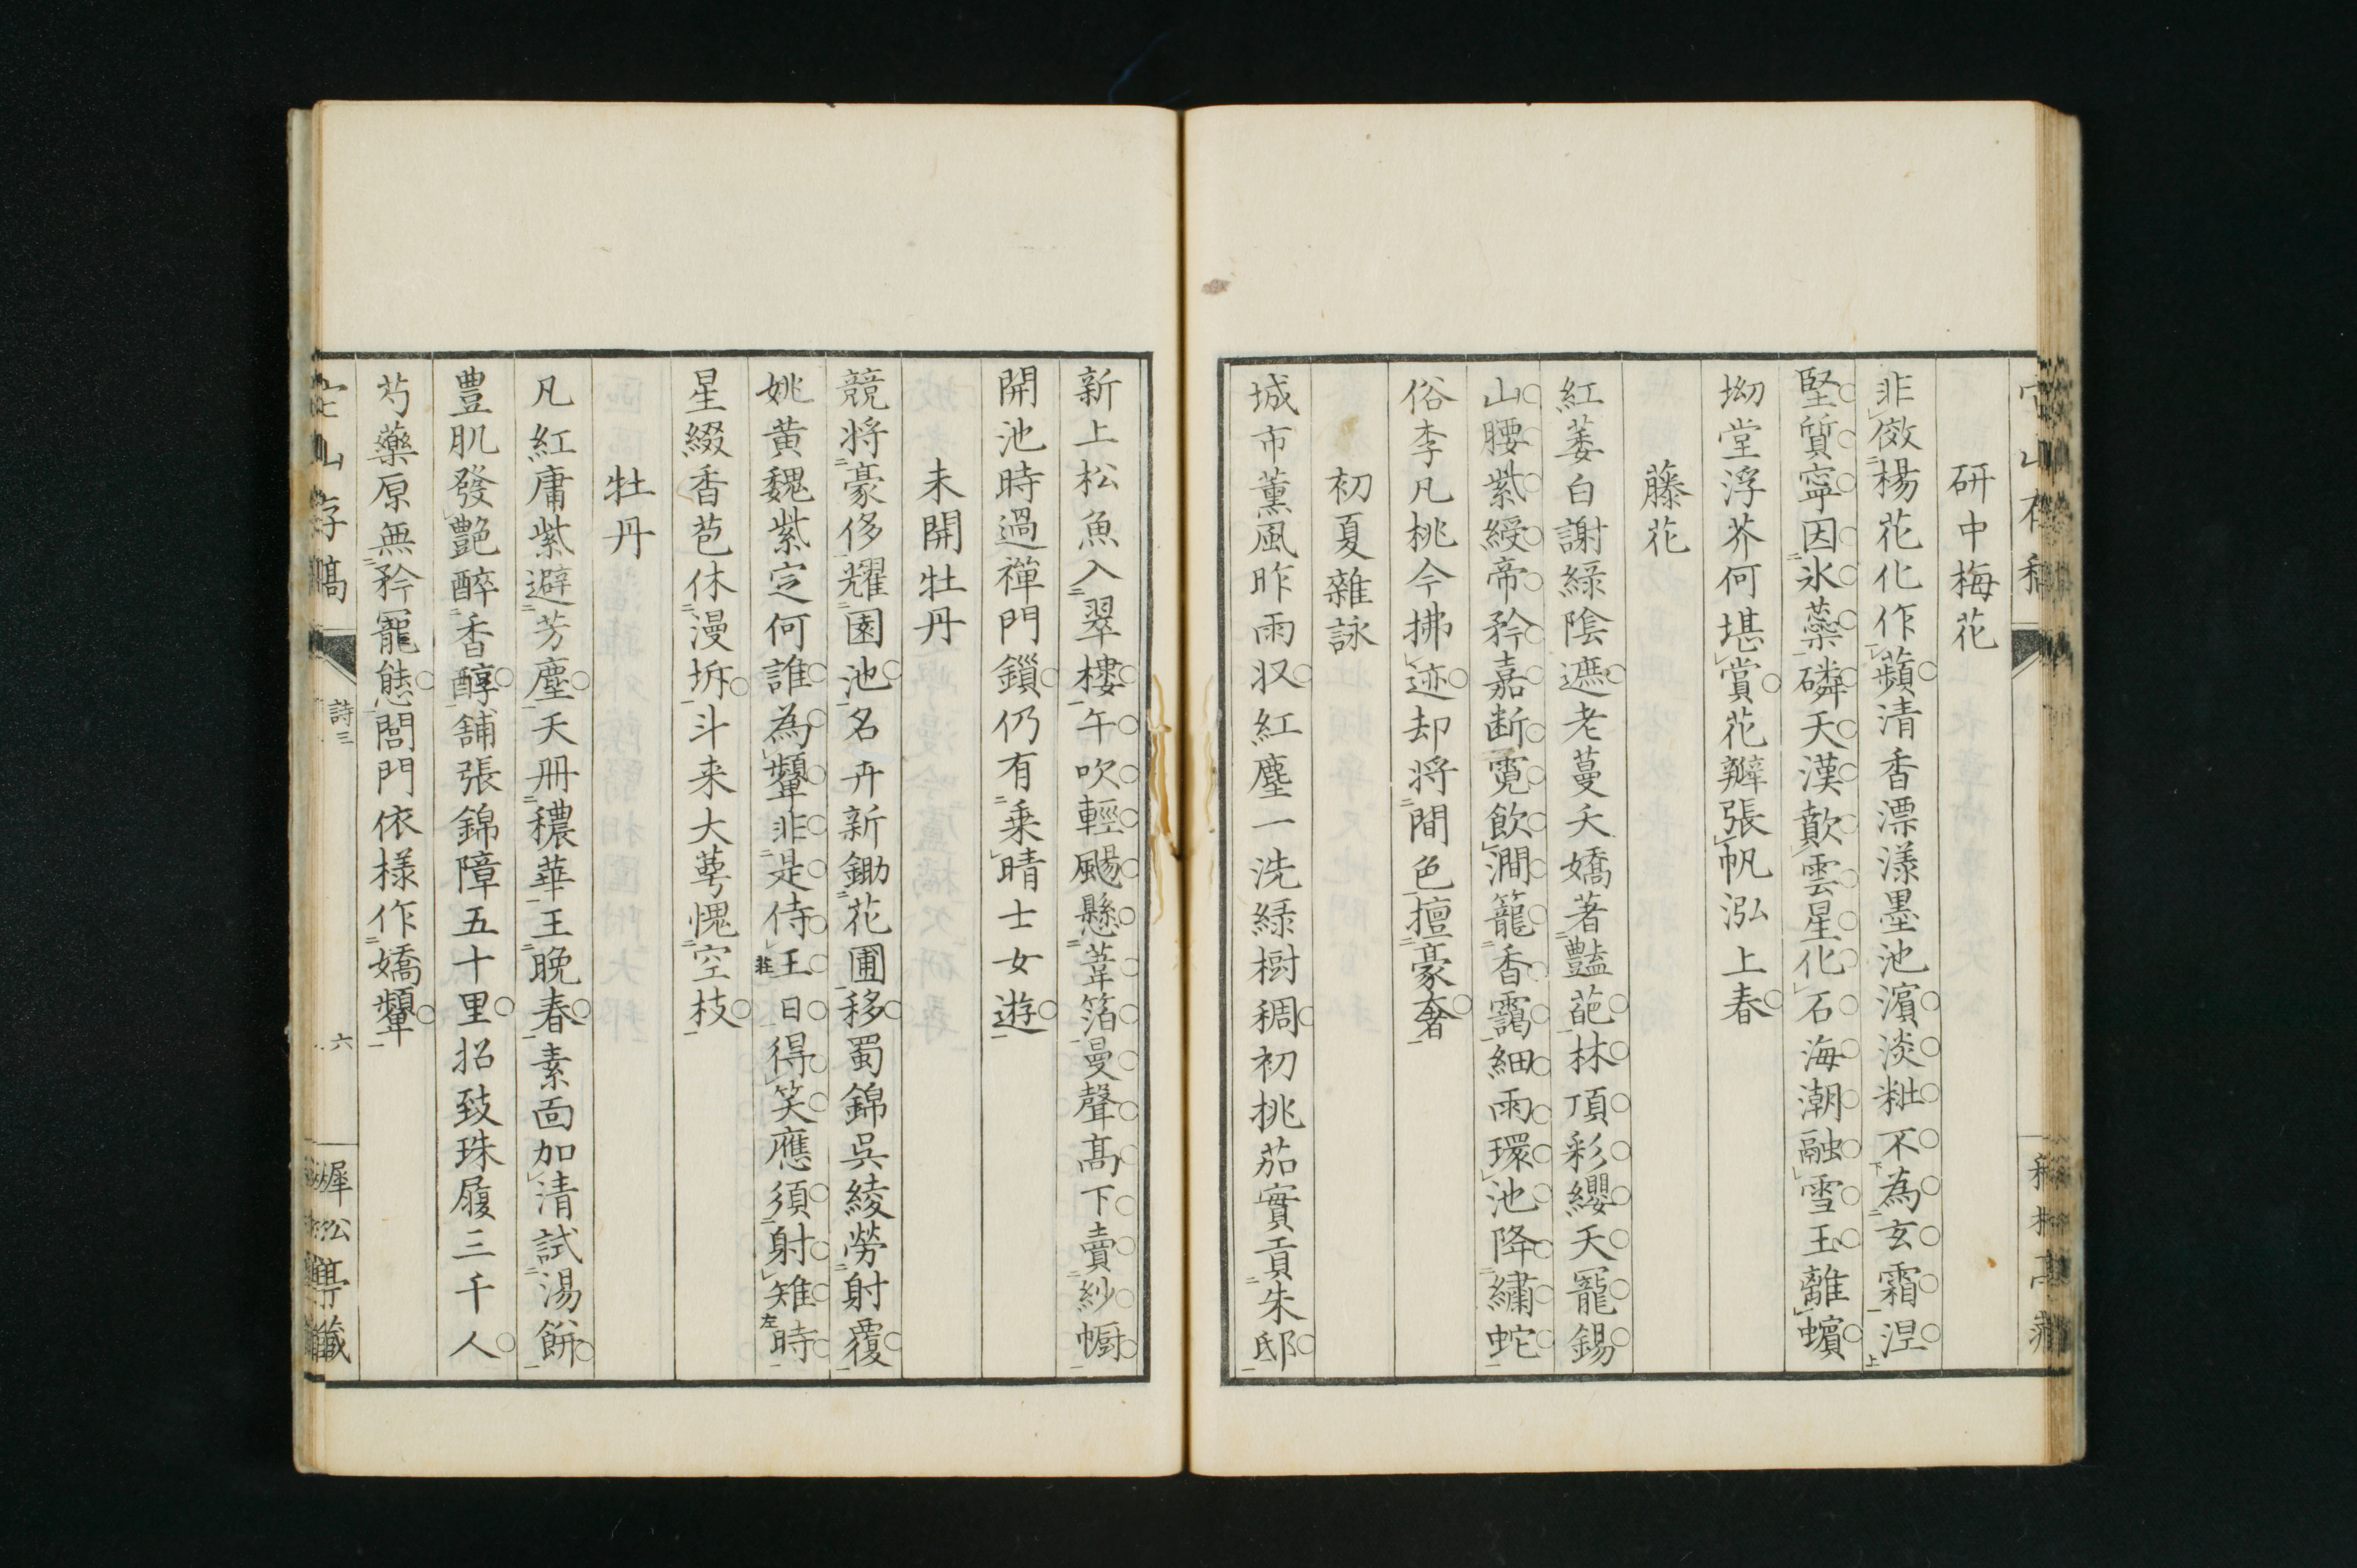 研中梅花
非倣楊花化作蘋清香漂漾墨池濱淡粧不為玄霜涅
堅質寧因氷蘂磷天漢歕雲星化石海潮融雪玉離蠙
坳堂浮芥何堪賞花瓣張帆泓上春
藤花
紅萎白謝綠陰遮老蔓夭嬌著豔葩林頂彩纓天寵錫
山腰紫綬帝矜嘉断霓飲澗籠香靄細雨環池降繡蛇
俗李凡桃今拂迹却将間色擅豪奢
初夏雜詠
城市薫風昨雨収紅塵一洗緑樹稠初挑茄實貢朱邸
新上松魚入翠樓午吹輕颺懸葦箔曼聲髙下賣紗幮
開池時過禪門鎖仍有乗晴士女遊
未開牡丹
競将豪侈耀園池名卉新鋤花圃移蜀錦呉綾勞射覆
姚黄魏紫定何誰為顰非是侍王荘日得笑應須射雉左時
星綴香苞休漫坼斗来大萼愧空枝
牡丹
凡紅庸紫避芳塵天冊穠華王晩春素面加清試湯餅
豊肌發艶醉香醇舗張錦障五十里招致珠履三千人
芍藥原無矜寵態閭門依様作嬌顰
山存稿
詩三
六
犀松亭藏